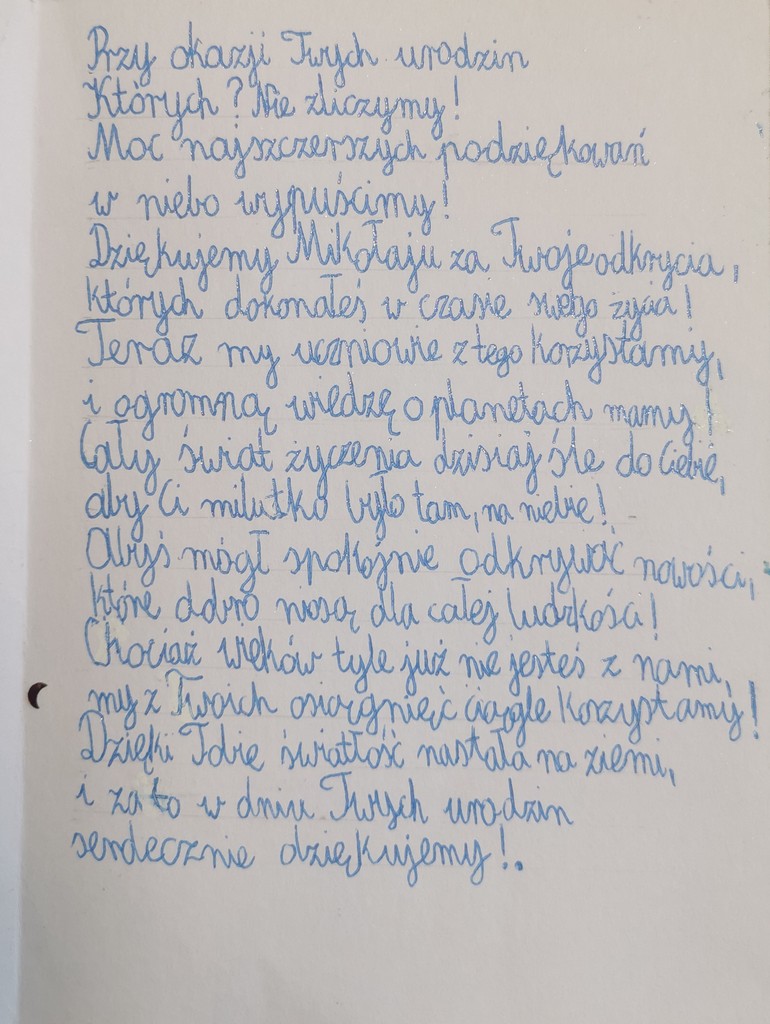 Przy okazji Twych urodzin
Których? Nie zliczymy!
Moc najszczerszych podziękowań
w niebo wypuścimy!
Dziękujemy Mikołaju za Twoje odkrycia,
których dokonałeś w czasie swego życia!
Teraz my uczniowie z tego korzystamy,
i ogromną wiedzę o planetach mamy!
Cały świat życzenia dzisiaj śle do Ciebie,
aby Ci milutko było tam, na niebie!
Abyś mógł spokojnie odkrywać nowości,
które dobro niosą dla całej ludzkości!
Chociaż wieków tyle już nie jesteś z nami,
my z Twoich osiągnięć ciągle korzystamy!
Dzięki Tobie światłość nastała na ziemi,
i za to w dniu Twych urodzin
serdecznie dziękujemy!.